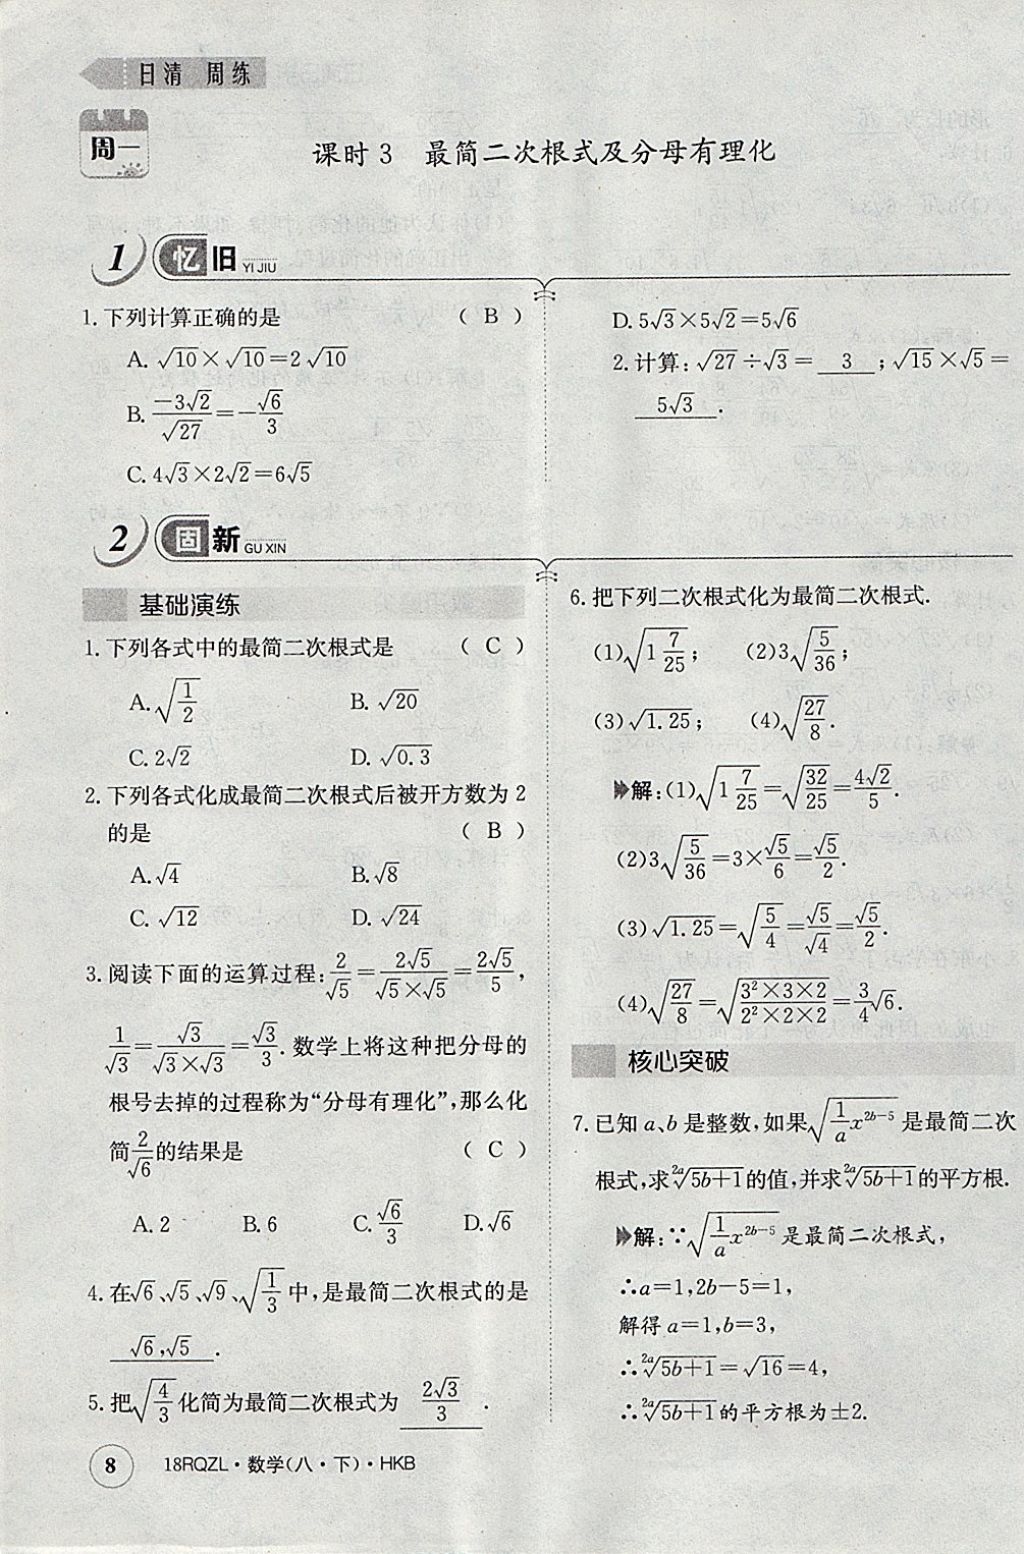 日清 周练
周一
课时3 最简二次根式及分母有理化
1 忆旧 YI JIU
1. 下列计算正确的是 ( B )
A. √10×√10=2√10
B. -3√2/√27=-√6/3
C. 4√3×2√2=6√5
D. 5√3×5√2=5√6
2. 计算: √27÷√3= 3 ; √15×√5=
5√3 .
2 固新 GU XIN
基础演练
1. 下列各式中的最简二次根式是 ( C )
A. √(1/2) B. √20
C. 2√2 D. √0.3
2. 下列各式化成最简二次根式后被开方数为2
的是 ( B )
A. √4 B. √8
C. √12 D. √24
3. 阅读下面的运算过程: 2/√5=2√5/(√5×√5)=2√5/5,
1/√3=√3/(√3×√3)=√3/3. 数学上将这种把分母的
根号去掉的过程称为“分母有理化”,那么化
简2/√6的结果是 ( C )
A. 2 B. 6 C. √6/3 D. √6
4. 在√6、√5、√9、√(1/3)中,是最简二次根式的是
√6,√5 .
5. 把√(4/3)化简为最简二次根式为 2√3/3 .
6. 把下列二次根式化为最简二次根式.
(1)√(1 7/25); (2)3√(5/36);
(3)√1.25; (4)√(27/8).
解:(1)√(1 7/25)=√(32/25)=4√2/5.
(2)3√(5/36)=3×√5/6=√5/2.
(3)√1.25=√(5/4)=√5/√4=√5/2.
(4)√(27/8)=√((3²×3×2)/(2²×2×2))=3/4√6.
核心突破
7. 已知a、b是整数,如果√(1/a x^(2b-5))是最简二次
根式,求 ²ᵃ√(5b+1)的值,并求 ²ᵃ√(5b+1)的平方根.
解:∵√(1/a x^(2b-5))是最简二次根式,
∴a=1,2b-5=1,
解得a=1,b=3,
∴ ²ᵃ√(5b+1)=√16=4,
∴ ²ᵃ√(5b+1)的平方根为±2.
8 18RQZL·数学(八·下)·HKB